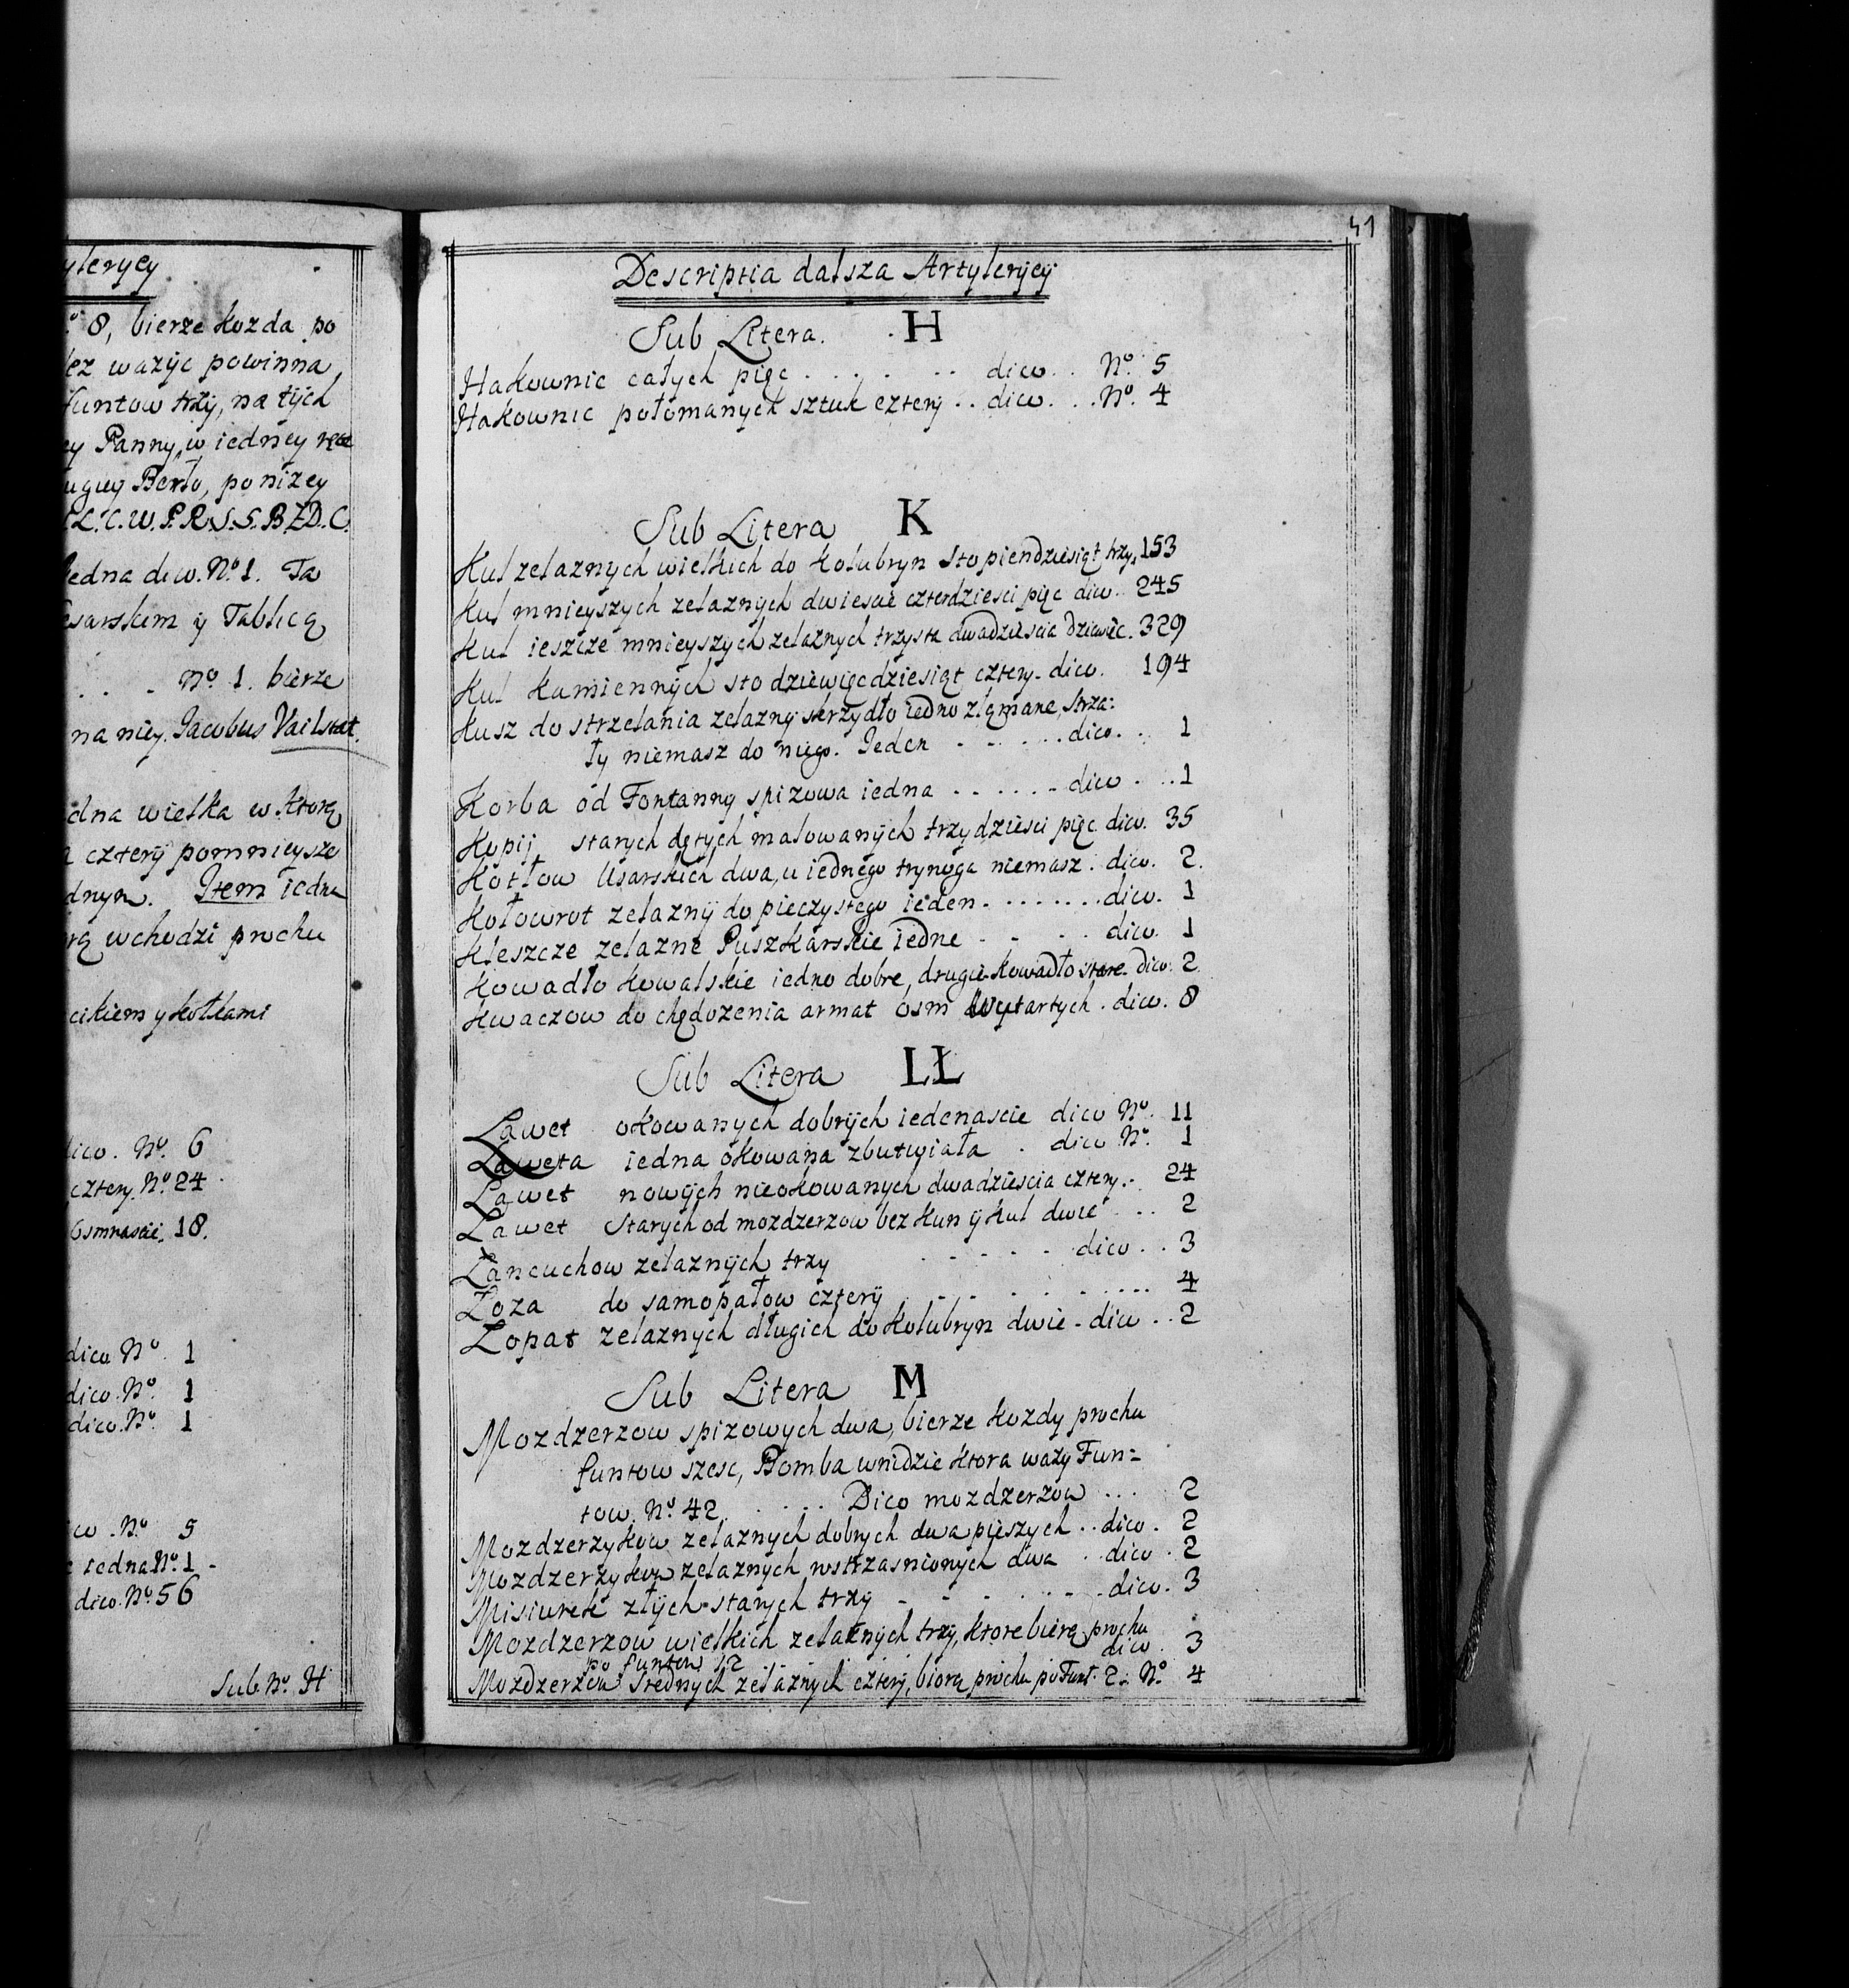 yleryey
8, bierze kozda po
lez wazyc powinna
Funtow trzy, na tych
ey Panny, w iedney rece
ugiey Berło, ponizey
L.C.W.P.R.S.S.B.Z.D.C.
Jedna dico. No. 1. Ta
esarskim y Tablicą
. . . No. 1. bierze
na niey. Jacobus Vailstat.
dna wielka w. ktorą
cztery pomnieysze
dnym. Item iedna
rą wchodzi prochu
cikiem y kotkami
dico. No. 6
cztery. No. 24
Osmnascie. 18.
dico No. 1
dico. No. 1
dico. No. 1
co. No. 5
iedna No. 1 -
dico. No. 56
Sub. No. H
41
Descriptia dalsza Artyleryey
Sub Litera. H
Hakownic całych pięc . . . . . . dico . . No. 5
Hakownic połomanych sztuk cztery . . dico. . . No. 4
Sub Litera K
Kul zelaznych wielkich do kolubryn Sto piendziesiąt trzy. 153
Kul mnieyszych zelaznych dwiescie czterdziesci pięc dico. 245
Kul ieszcze mnieyszych zelaznych trzysta dwadziescia dziewięc. 329
Kul kamiennych sto dziewięcdziesiąt cztery. dico. 194
Kusz do strzelania zelazny skrzydło iedno złamane, strza:
ły niemasz do niego. Jeden . . . . . . dico. . 1
Korba od Fontanny spizowa iedna . . . . . . dico . . . 1
Kopij starych dętych malowanych trzydziesci pięc dico. 35
Kotłow Usarskich dwa, u iednego trynoga niemasz. dico. 2.
Kołowrot zelazny do pieczystego ieden . . . . . . . dico. 1
Kleszcze zelazne Puszkarskie iedne . . . . dico. 1
Kowadło kowalskie iedno dobre, drugie kowadło stare dico. 2.
Kwaczow do chędozenia armat osm Wytartych . dico. 8
Sub Litera LŁ
Lawet okowanych dobrych iedenascie dico No. 11
Laweta iedna okowana zbutwiała . dico No. 1
Lawet nowych nieokowanych dwadziescia cztery . . 24
Lawet Starych od mozdzerzow bez kun y kul dwie . . . 2
Łancuchow zelaznych trzy . . . . . dico . . 3
Łoza do samopałow cztery . . . . . . . . . . 4
Łopat zelaznych długich do kolubryn dwie - dico . . 2
Sub Litera M
Mozdzerzow spizowych dwa, bierze kozdy prochu
funtow szesc, Bomba wnidzie ktora wazy Fun=
tow. No. 42 . . . . . Dico mozdzerzow . . . 2
Mozdzerzykow zelaznych dobrych dwa pieszych . . dico . 2
Mozdzerzykow zelaznych rostrzasnionych dwa . . dico . 2
Misiurek złych starych trzy - . . . . . . dico. 3
Mozdzerzow wielkich zelaznych trzy, ktore bierą prochu
po funtow 12 dico . 3
Mozdzerzow Srednych zelaznych cztery, biorą prochu po Funt. 2. No. 4